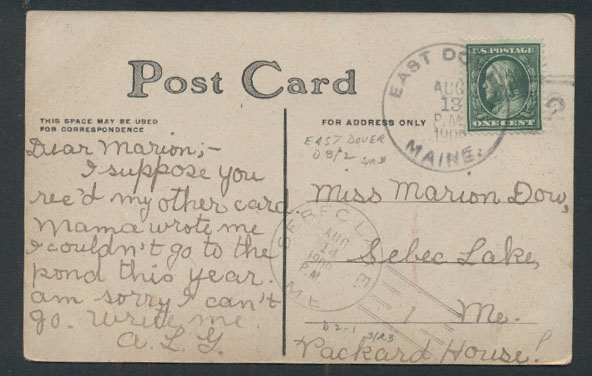 Post Card
THIS SPACE MAY BE USED
FOR CORRESPONDENCE
FOR ADDRESS ONLY
Dear Marion;-
I suppose you
rec'd my other card.
Mama wrote me
I couldn't go to the
pond this year.
am sorry I can't
go. Write me
A.L.G.
U.S. POSTAGE
ONE CENT
EAST DO
AUG
13
P.M.
MAINE.
EAST DOVER
D3/2
SEBEC
AUG
14
P.M
ME
Miss Marion Dow,
Sebec Lake,
Me.
D2-1
Packard House.